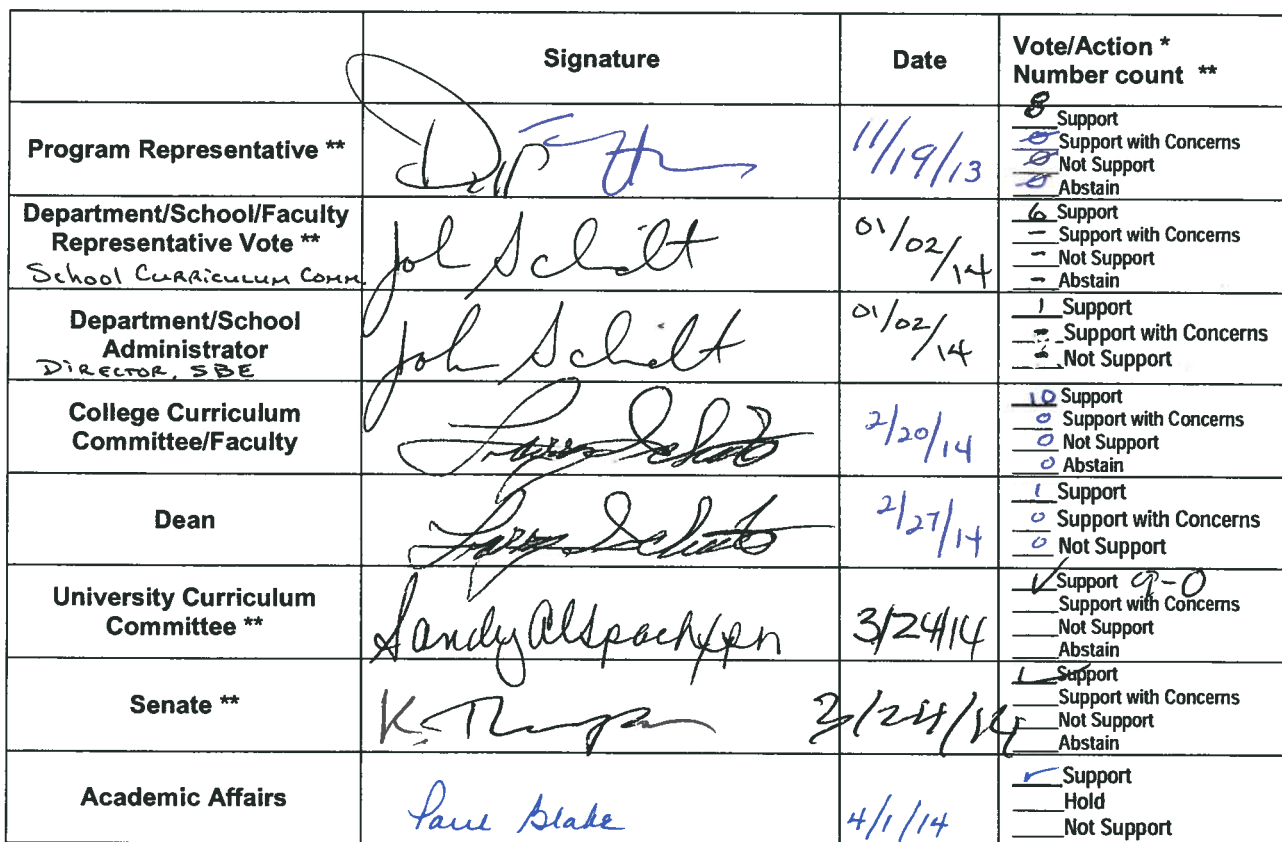 Signature
Date
Vote/Action *
Number count **
Program Representative **
11/19/13
8 Support
0 Support with Concerns
0 Not Support
0 Abstain
Department/School/Faculty
Representative Vote **
School Curriculum Comm
Joh Schildt
01/02/14
6 Support
- Support with Concerns
- Not Support
- Abstain
Department/School
Administrator
Director, SBE
Joh Schildt
01/02/14
1 Support
- Support with Concerns
- Not Support
College Curriculum
Committee/Faculty
2/20/14
10 Support
0 Support with Concerns
0 Not Support
0 Abstain
Dean
2/27/14
1 Support
0 Support with Concerns
0 Not Support
University Curriculum
Committee **
Sandy Alspach
3/24/14
✓ Support 9-0
Support with Concerns
Not Support
Abstain
Senate **
K. Thompson
3/24/14
Support
Support with Concerns
Not Support
Abstain
Academic Affairs
Paul Blake
4/1/14
✓ Support
Hold
Not Support